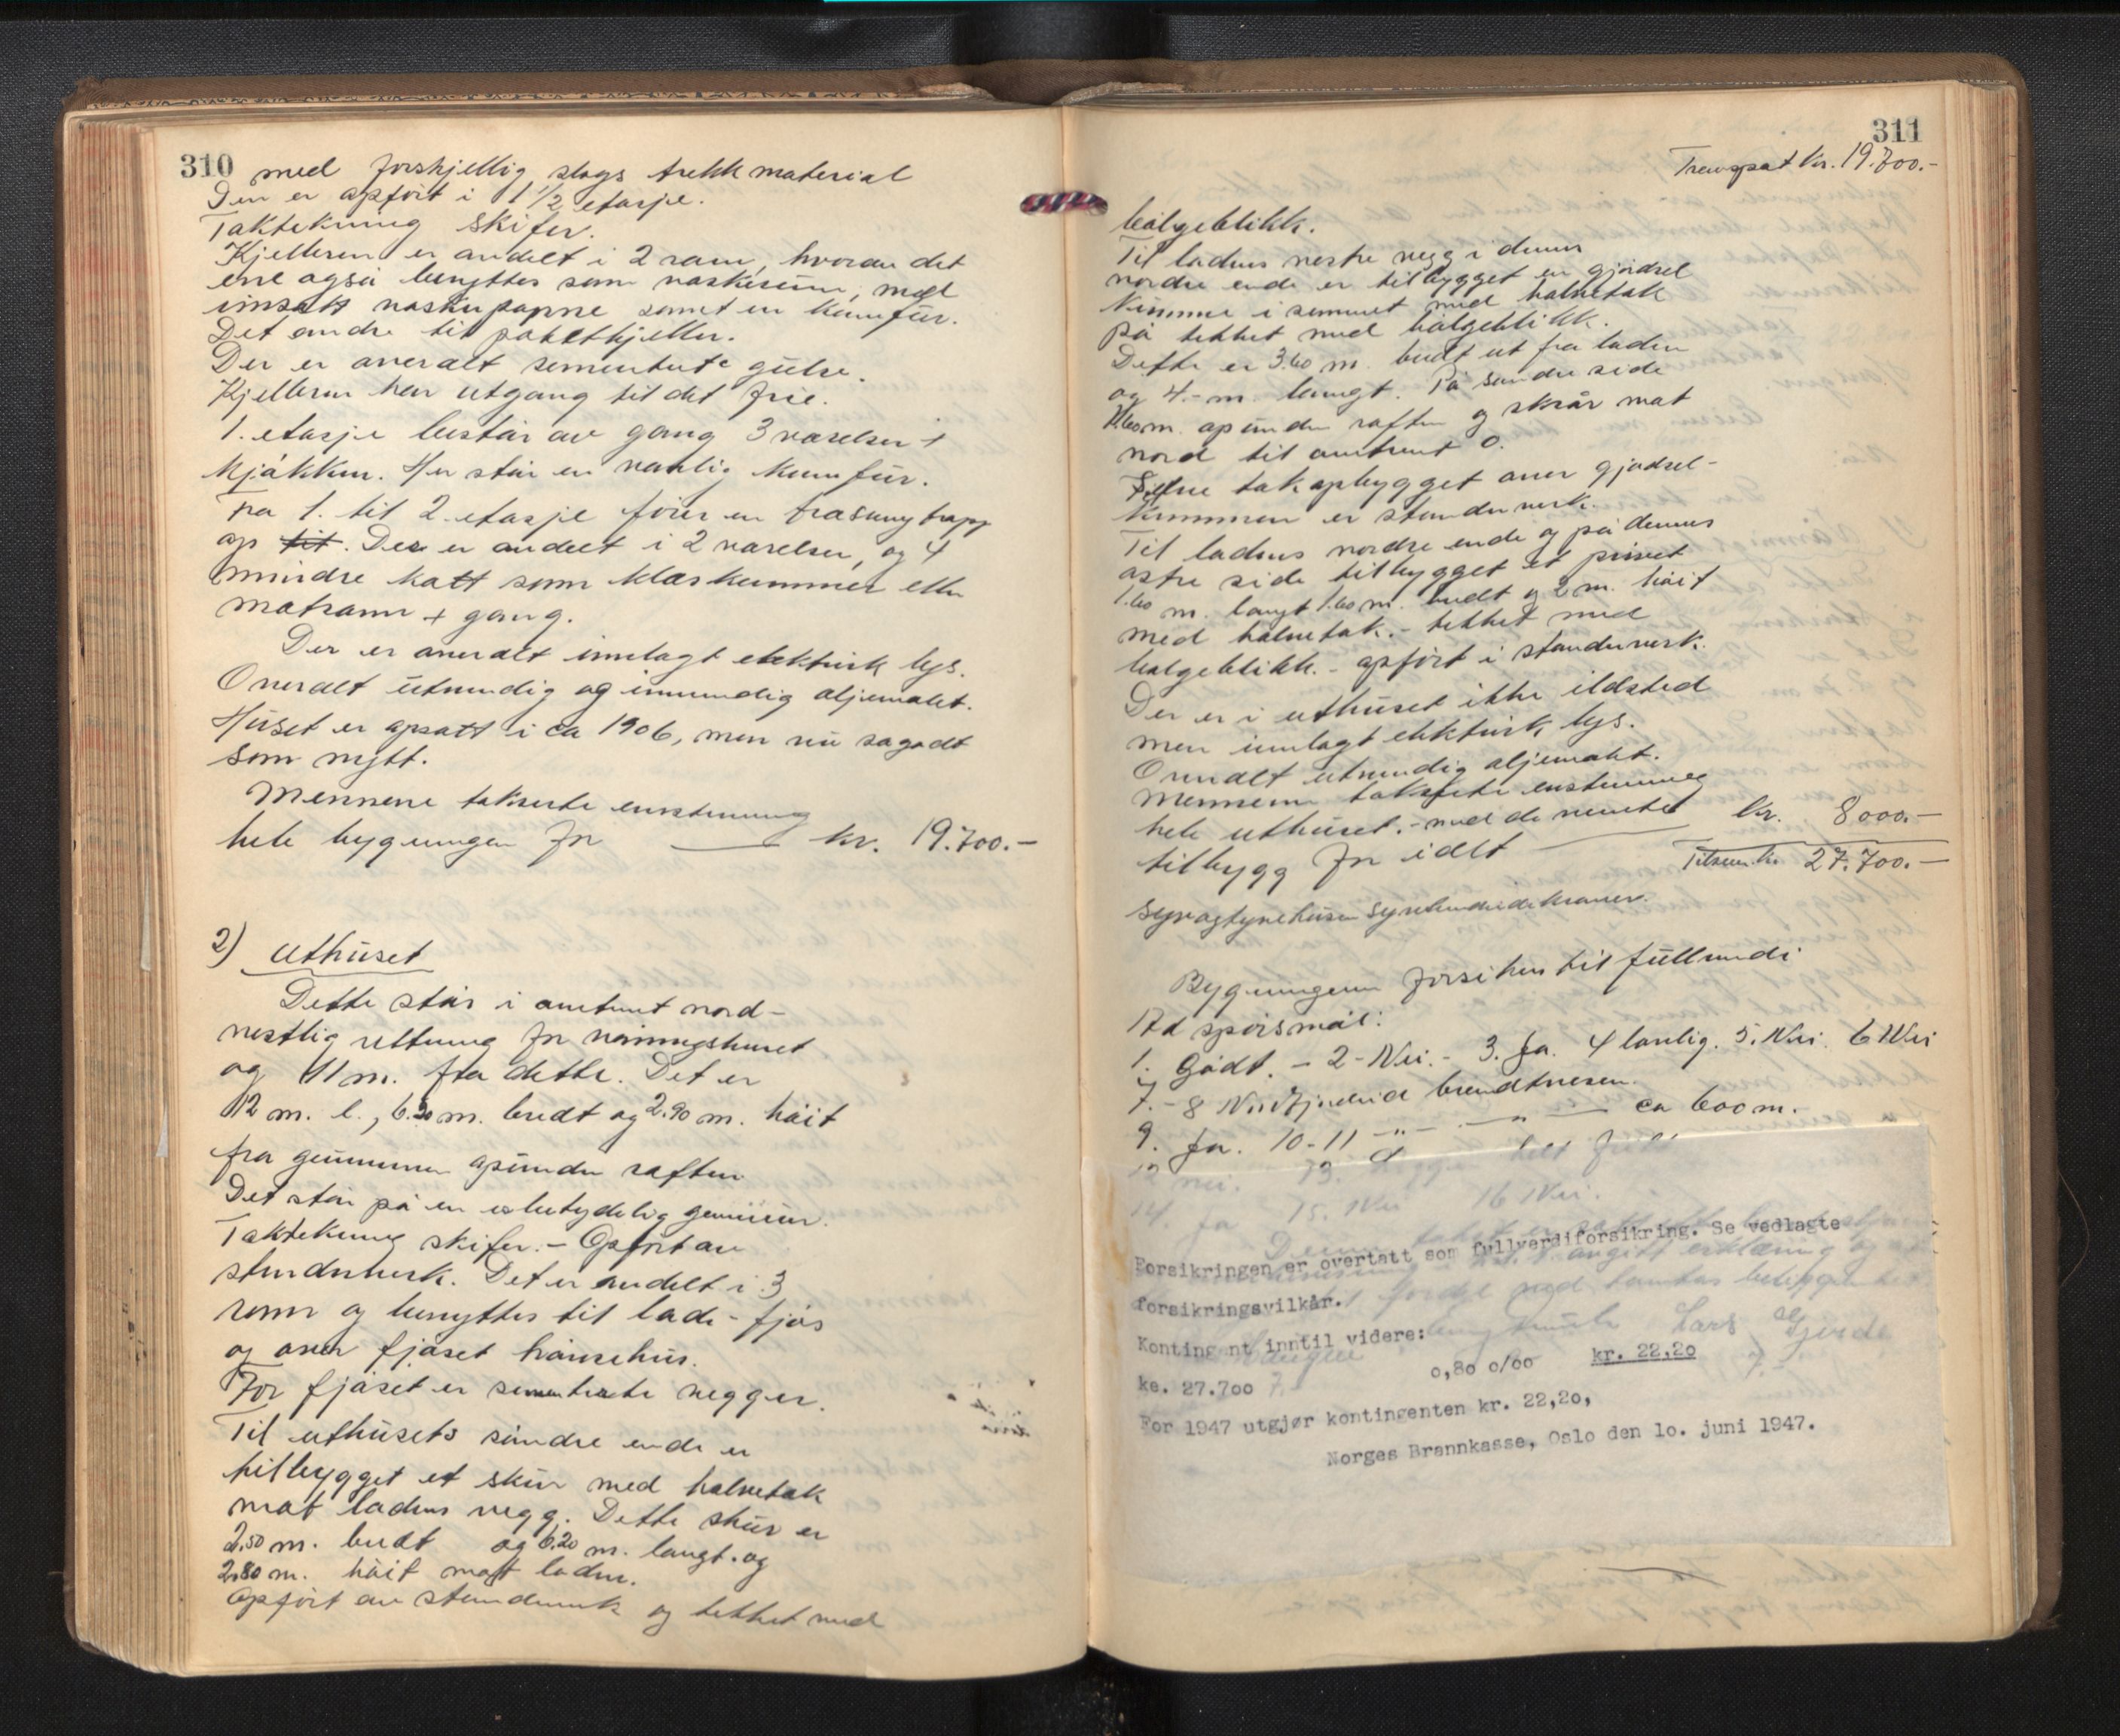 310
med forskjellig slags trekkmaterial
Den er opført i 1 1/2 etasje.
Taktekning skifer.
Kjelleren er avdelt i 2 rom, hvorav det
ene også benyttes som vaskerum, med
innsatt vaskepanne samt en komfür.
Det andre til potetkjeller.
Der er overalt sementerte gulve.
Kjelleren har utgang til det frie.
1. etasje består av gang 3 værelser +
kjøkken. Her står en vanlig komfür.
Fra 1. til 2. etasje fører en trapp
op til. Der er avdelt i 2 værelser, og 4
mindre kott som klæskammer eller
matrom + gang.
Der er overalt innlagt elektrisk lys.
Overalt utvendig og innvendig oljemalet.
Huset er opsatt i ca 1906, men nu sagodt
som nytt.
Mennene takserte enstemmig
hele bygningen for kr. 19.700.-
2) Uthuset
Dette står i omtrent nord-
vestlig rettning for våningshuset
og 11 m. fra dette. Det er
12 m. l., 6.30 m. bredt og 2.90 m. høit
fra gemmuren opunder raften
Det står på en ubetydelig gemmur.
Taktekning skifer. - Opført av
stenderverk. Det er avdelt i 3
rom og benyttes til lade - fjøs
og over fjøset hønsehus.
For fjøset er sementerte vegger.
Til uthusets søndre ende er
tilbygget et skur med halvetak
mot ladens vegg. Dette skur er
2.50 m. bredt og 6.20 m. langt. og
2.80 m. høit mot laden.
Opført av stenderverk og tekket med
311
Transport kr. 19.700.-
bølgeblikk.
Til ladens vestre vegg i dennes
nordre ende er tilbygget en gjødsel
kumme i sement med halvetak
på tekket med bølgeblikk.
Dette er 3.60 m. bredt ut fra laden
og 4.- m. langt. På søndre side
m. opunder raften og skrår mot
nord til omtrent 0.
takopbygget over gjødsel-
kummen er stenderverk.
Til ladens nordre ende og på dennes
østre side tilbygget et privet
1.60 m. langt 1.60 m. bredt og 2 m. høit
med halvetak. - tekket med
bølgeblikk. - opført i stenderverk.
Der er i uthuset ikke ildsted
men innlagt elektrisk lys.
Overalt utvendig oljemalet.
Mennene takserte enstemmig
hele uthuset. - med de nevnte
tilbygg for idlt kr. 8000.-
Tilsam. kr. 27.700.-
Bygningene forsikres til fullverdi
Ad spørsmål:
1. Godt. - 2 - Nei. - 3. Ja. 4 lovlig. 5. Nei. 6 Nei
7. - 8 Nei brendtvesen.
9. Ja. 10-11 -"- -"- ca 600 m.
12 nei. 13. helt fritt
14. Ja 15. Nei 16 Nei.
Forsikringen er overtatt som fullverdiforsikring. Se vedlagte
forsikringsvilkår.
Kontingent inntil videre:
ke. 27.700 0,80 o/oo kr. 22,20
For 1947 utgjør kontingenten kr. 22,20,
Norges Brannkasse, Oslo den 10. juni 1947.